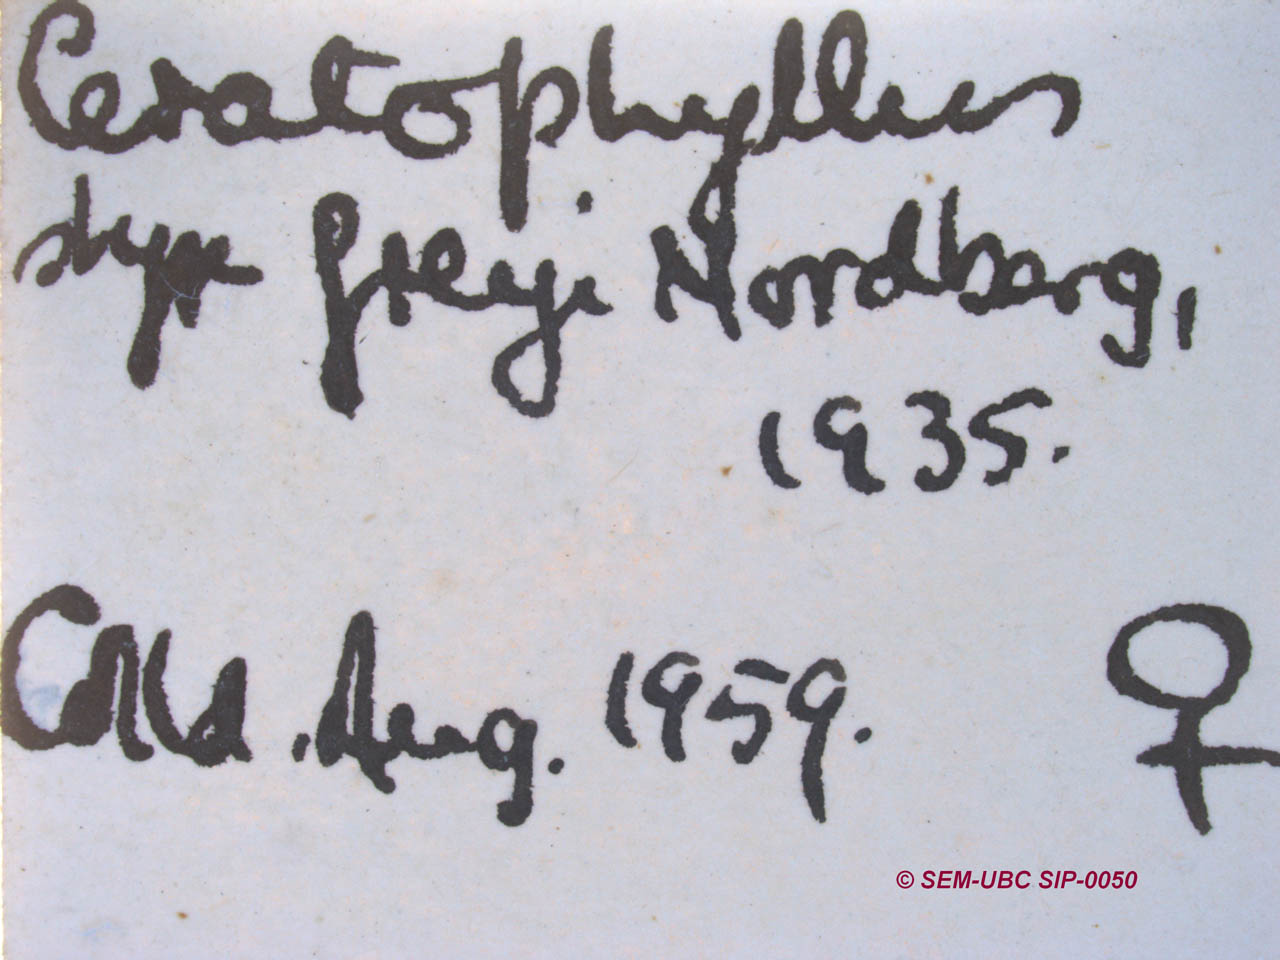 Ceratophyllus
styx freyi Nordberg,
1935.
Colld. Aug. 1959. ♀
© SEM-UBC SIP-0050